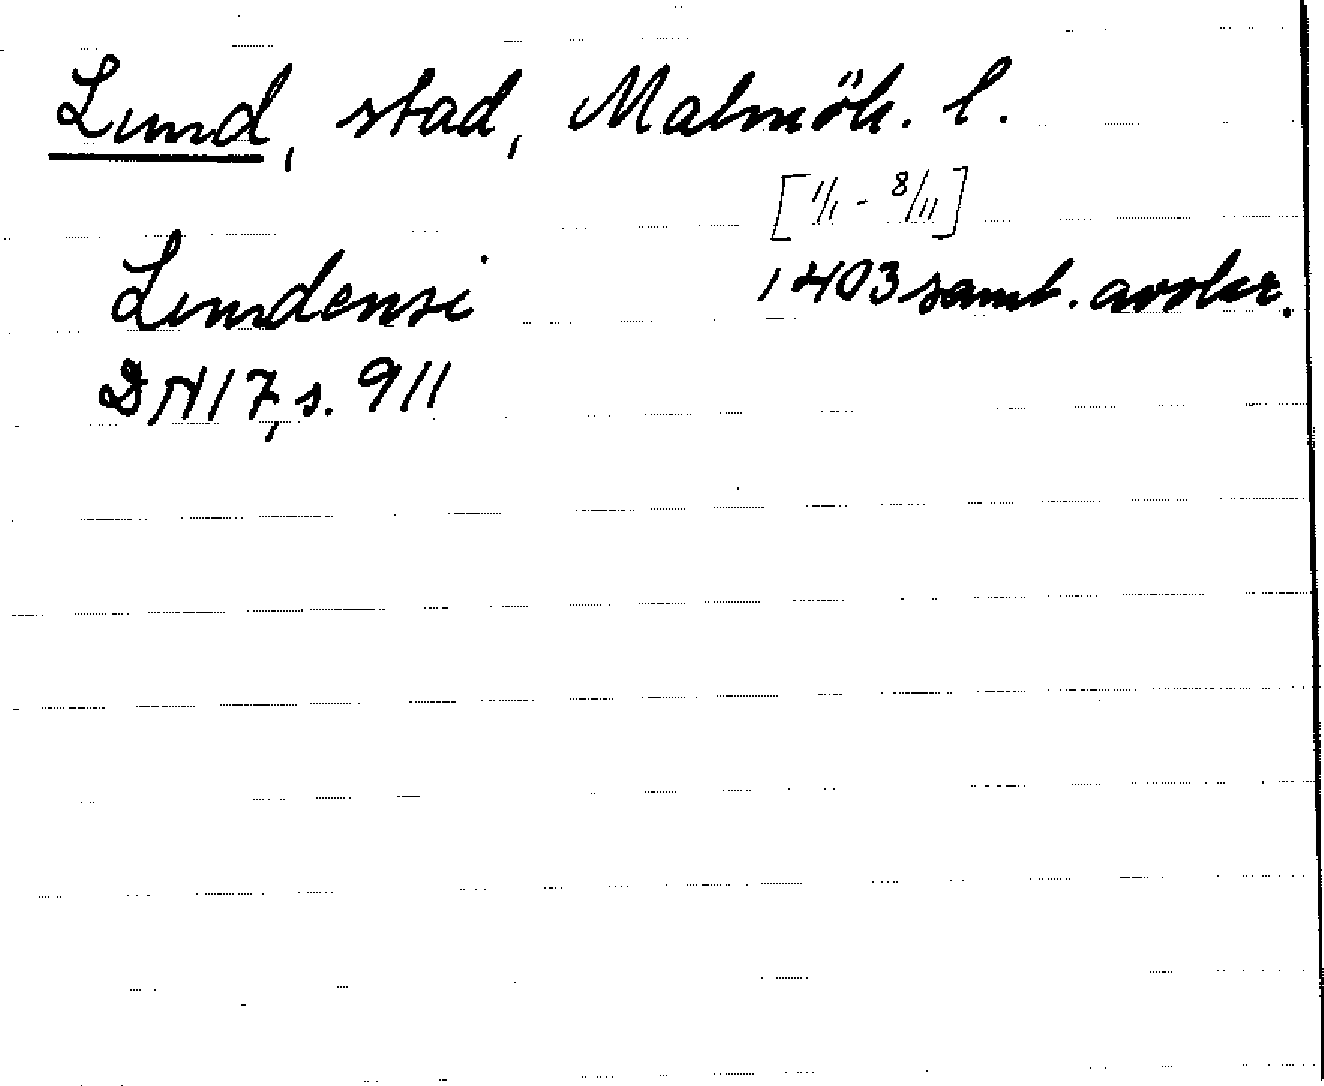 Lund, stad, Malmöh. l.
[1/1 - 8/11]
Lundensi 1403 samt. avskr.
DN 17, s. 911